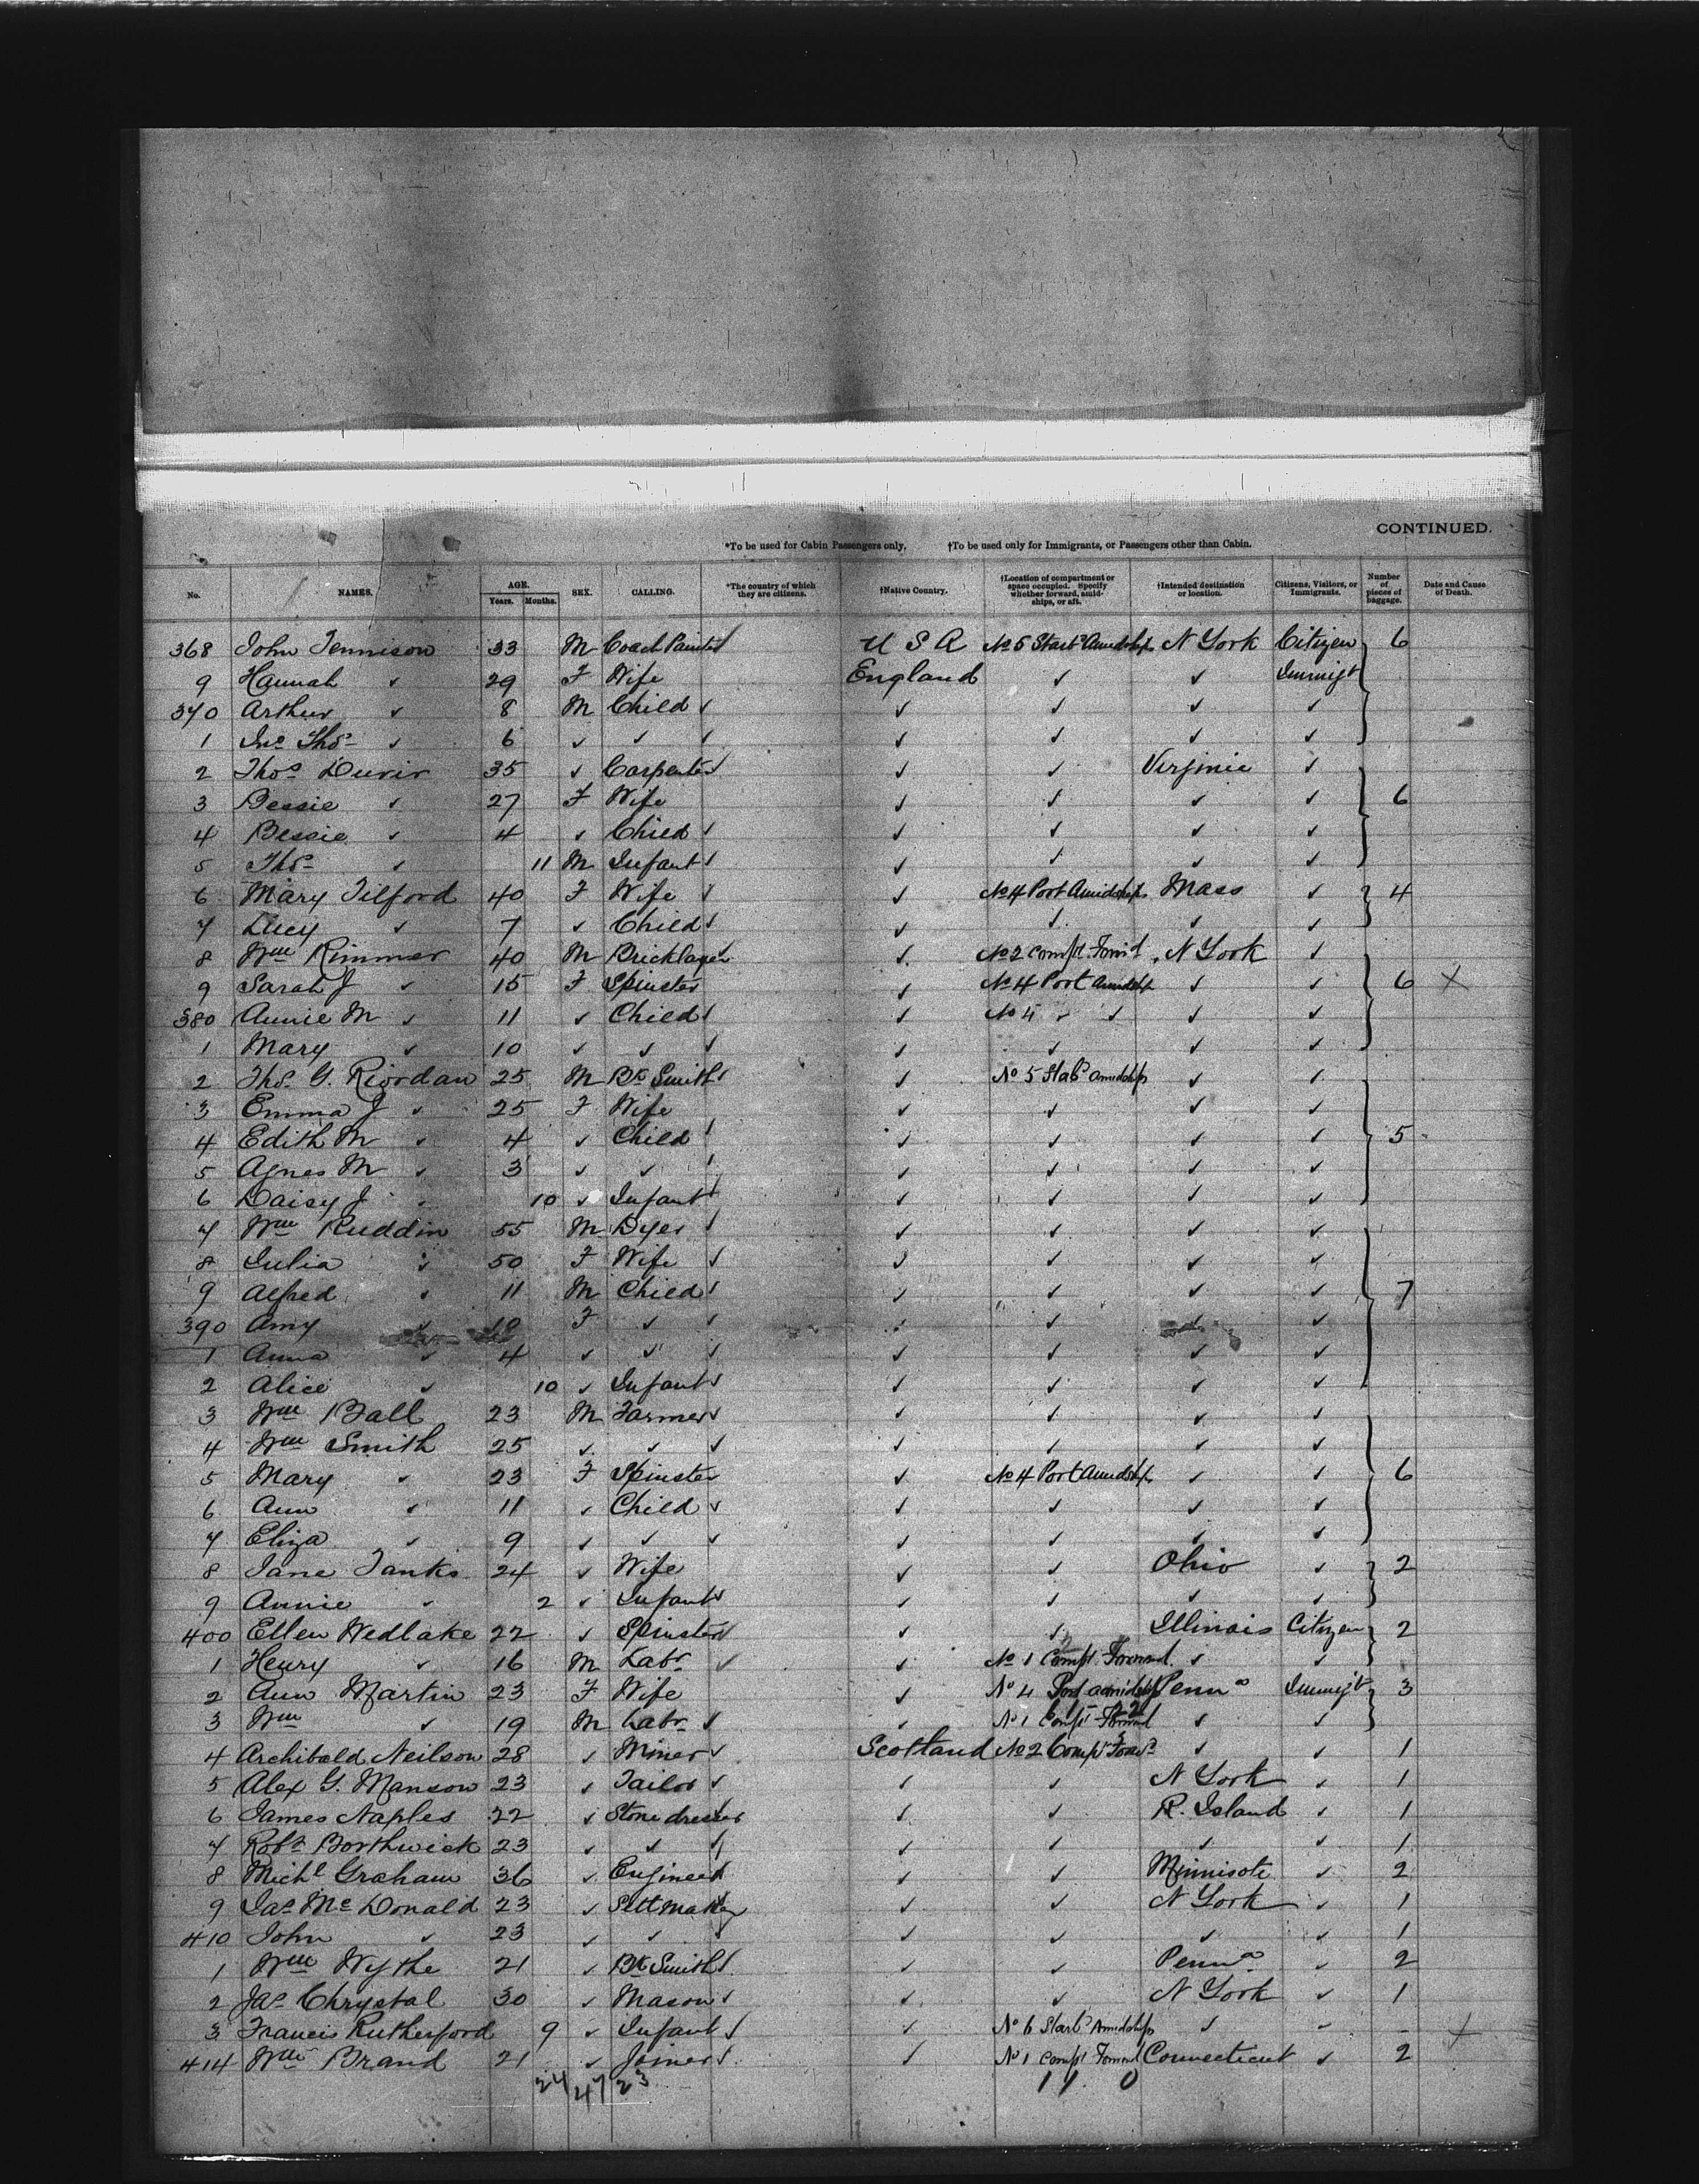 CONTINUED.
*To be used for Cabin Passengers only. †To be used only for Immigrants, or Passengers other than Cabin.
No. NAMES. AGE. Years. Months. SEX. CALLING. *The country of which they are citizens. †Native Country. †Location of compartment or space occupied. Specify whether forward, amidships, or aft. †Intended destination or location. Citizens, Visitors, or Immigrants. Number of pieces of baggage. Date and Cause of Death.
368 John Tennison 33 M Coach Painter U S A No 5 Starb Amidships N York Citizen 6
9 Hannah ✓ 29 F Wife England ✓ ✓ Immigt
370 Arthur ✓ 8 M Child ✓ ✓ ✓ ✓ ✓
1 Jno Thos ✓ 6 ✓ ✓ ✓ ✓ ✓ ✓ ✓
2 Thos 35 ✓ Carpenter ✓ ✓ Virginia ✓
3 Bessie ✓ 27 F Wife ✓ ✓ ✓ ✓ 6
4 Bessie ✓ 4 ✓ Child ✓ ✓ ✓ ✓ ✓
5 Thos ✓ 11 M Infant ✓ ✓ ✓ ✓ ✓
6 Mary Tilford 40 F Wife ✓ ✓ No 4 Port Amidships Mass ✓ 4
7 Lucy ✓ 7 ✓ Child ✓ ✓ ✓ ✓ ✓
8 Wm Rimmer 40 M Bricklayer ✓ No 2 Compt Forwd N York ✓
9 Sarah J ✓ 15 F Spinster ✓ No 4 Port Amidship ✓ ✓ 6 X
380 Annie M ✓ 11 ✓ Child ✓ ✓ No 4 ✓ ✓ ✓ ✓
1 Mary ✓ 10 ✓ ✓ ✓ ✓ ✓ ✓ ✓
2 Thos G. Riordan 25 M Bk Smith ✓ ✓ No 5 Stabd Amidships ✓ ✓
3 Emma J ✓ 25 F Wife ✓ ✓ ✓ ✓
4 Edith M ✓ 4 ✓ Child ✓ ✓ ✓ ✓ ✓ 5
5 Agnes M ✓ 3 ✓ ✓ ✓ ✓ ✓ ✓ ✓
6 Daisy J ✓ 10 ✓ Infant ✓ ✓ ✓ ✓ ✓
7 Wm Ruddin 55 M Dyer ✓ ✓ ✓ ✓ ✓
8 Julia ✓ 50 F Wife ✓ ✓ ✓ ✓ ✓
9 Alfred ✓ 11 M Child ✓ ✓ ✓ ✓ ✓ 7
390 Amy ✓ 10 F ✓ ✓ ✓ ✓ ✓ ✓
1 Anna ✓ 4 ✓ ✓ ✓ ✓ ✓ ✓ ✓
2 Alice ✓ 10 ✓ Infant ✓ ✓ ✓ ✓ ✓
3 Wm Ball 23 M Farmer ✓ ✓ ✓ ✓ ✓
4 Wm Smith 25 ✓ ✓ ✓ ✓ ✓ ✓ ✓
5 Mary ✓ 23 F Spinster ✓ No 4 Port Amidship ✓ ✓ 6
6 Ann ✓ 11 ✓ Child ✓ ✓ ✓ ✓ ✓
7 Eliza ✓ 9 ✓ ✓ ✓ ✓ ✓ ✓ ✓
8 Jane Tanks 24 ✓ Wife ✓ ✓ Ohio ✓ 2
9 Annie ✓ 2 ✓ Infant ✓ ✓ ✓ ✓ ✓
400 Ellen Wedlake 22 ✓ Spinster ✓ ✓ ✓ Illinois Citizen 2
1 Henry ✓ 16 M Labr ✓ ✓ No 1 Compt Forward ✓ ✓
2 Ann Martin 23 F Wife ✓ No 4 Port amidship Penna Immigt 3
3 Wm ✓ 19 M Labr ✓ ✓ No 1 Compt Forward ✓ ✓
4 Archibald Neilson 28 ✓ Miner ✓ Scotland No 2 Compt Forwd ✓ ✓ 1
5 Alex G. Manson 23 ✓ Tailor ✓ ✓ ✓ N York ✓ 1
6 James Naples 22 ✓ Stone dresser ✓ ✓ R. Island ✓ 1
7 Robt Borthwick 23 ✓ ✓ ✓ ✓ ✓ ✓ ✓ 1
8 Michl Graham 36 ✓ Engineer ✓ ✓ Minnisote ✓ 2
9 Jas McDonald 23 ✓ Settmaker ✓ ✓ N York ✓ 1
410 John ✓ 23 ✓ ✓ ✓ ✓ ✓ ✓ ✓ 1
1 Wm Wythe 21 ✓ Bk Smith ✓ ✓ ✓ Penna ✓ 2
2 Jas Chrystal 30 ✓ Mason ✓ ✓ ✓ N York ✓ 1
3 Francis Rutherford 9 ✓ Infant ✓ ✓ No 6 Starbd Amidships ✓ – – X
414 Wm Brand 21 ✓ Joiner ✓ ✓ No 1 Compt Forward Connecticut ✓ 2
24 47 23 11 0